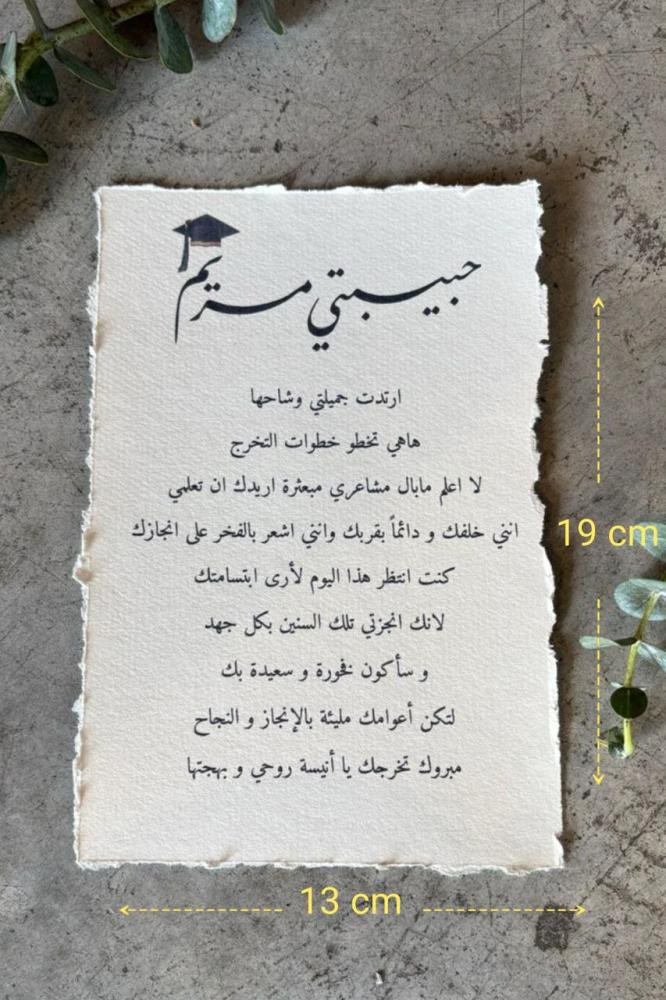 حبيبتي مريم
ارتدت جميلتي وشاحها
هاهي تخطو خطوات التخرج
لا اعلم مابال مشاعري مبعثرة اريدك ان تعلمي
انني خلفك و دائماً بقربك وانني اشعر بالفخر على انجازك
كنت انتظر هذا اليوم لأرى ابتسامتك
لانك انجزتي تلك السنين بكل جهد
و سأكون فخورة و سعيدة بك
لتكن أعوامك مليئة بالإنجاز و النجاح
مبروك تخرجك يا أنيسة روحي و بهجتها
19 cm
13 cm